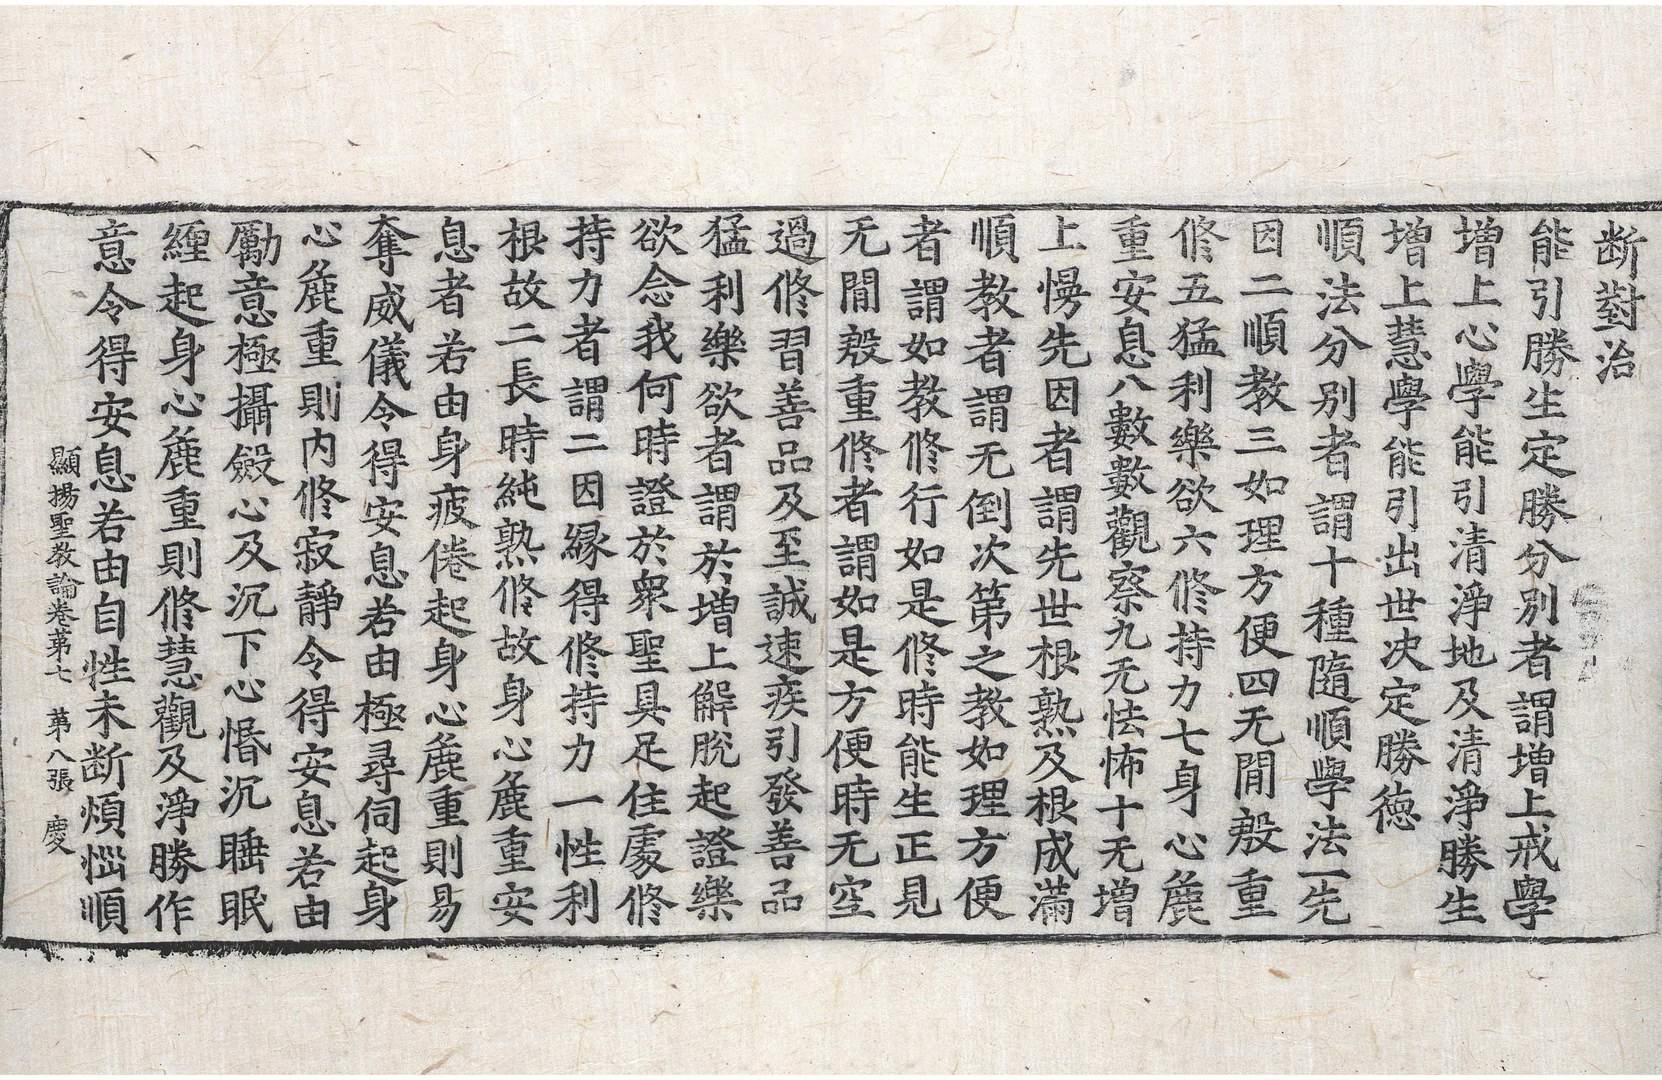 断對治
能引勝生定勝分別者謂增上戒學
增上心學能引清淨地及清淨勝生
增上慧學能引出世决定勝德
順法分別者謂十種隨順學法一先
因二順教三如理方便四无閒殷重
修五猛利樂欲六修持力七身心麁
重安息八數數觀察九无怯怖十无增
上慢先因者謂先世根熟及根成滿
順教者謂无倒次第之教如理方便
者謂如教修行如是修時能生正見
无閒殷重修者謂如是方便時无空
過修習善品及至誠速疾引發善品
猛利樂欲者謂於增上解脫起證樂
欲念我何時證於衆聖具足住處修
持力者謂二因緣得修持力一性利
根故二長時純熟修故身心麁重安
息者若由身疲倦起身心麁重則易
奪威儀令得安息若由極尋伺起身
心麁重則内修寂靜令得安息若由
勵意極攝斂心及沉下心惛沉睡眠
纏起身心麁重則修慧觀及淨勝作
意令得安息若由自性未断煩惱順
顯揚聖教論卷第七 第八張 慶